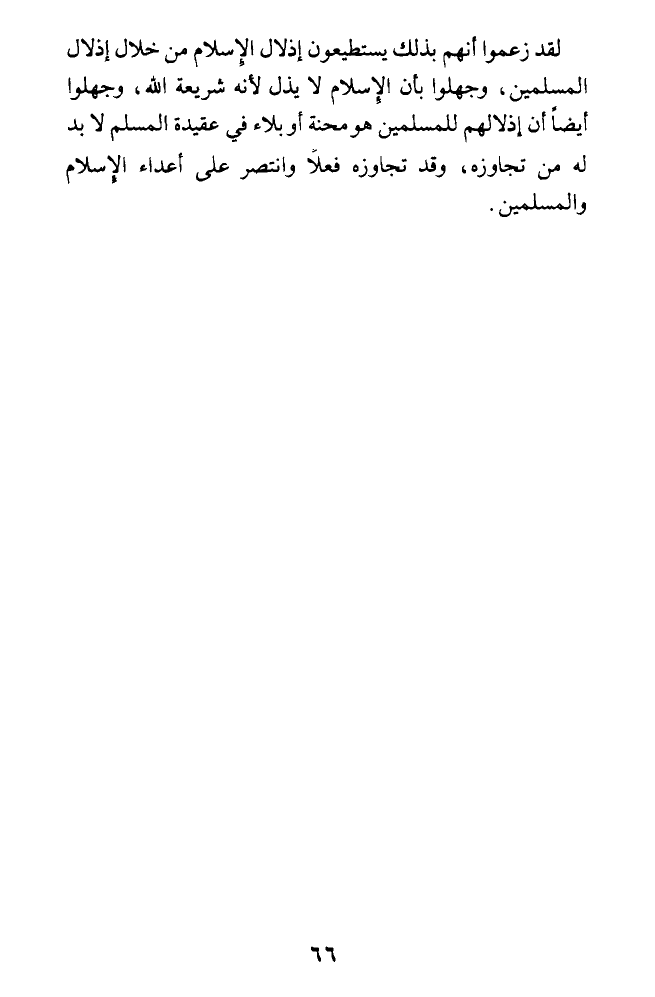 لقد زعموا أنهم بذلك يستطيعون إذلال الإسلام من خلال إذلال
المسلمين، وجهلوا بأن الإسلام لا يذل لأنه شريعة الله، وجهلوا
أيضاً أن إذلالهم للمسلمين هو محنة أو بلاء في عقيدة المسلم لا بد
له من تجاوزه، وقد تجاوزه فعلاً وانتصر على أعداء الإسلام
والمسلمين.
٦٦